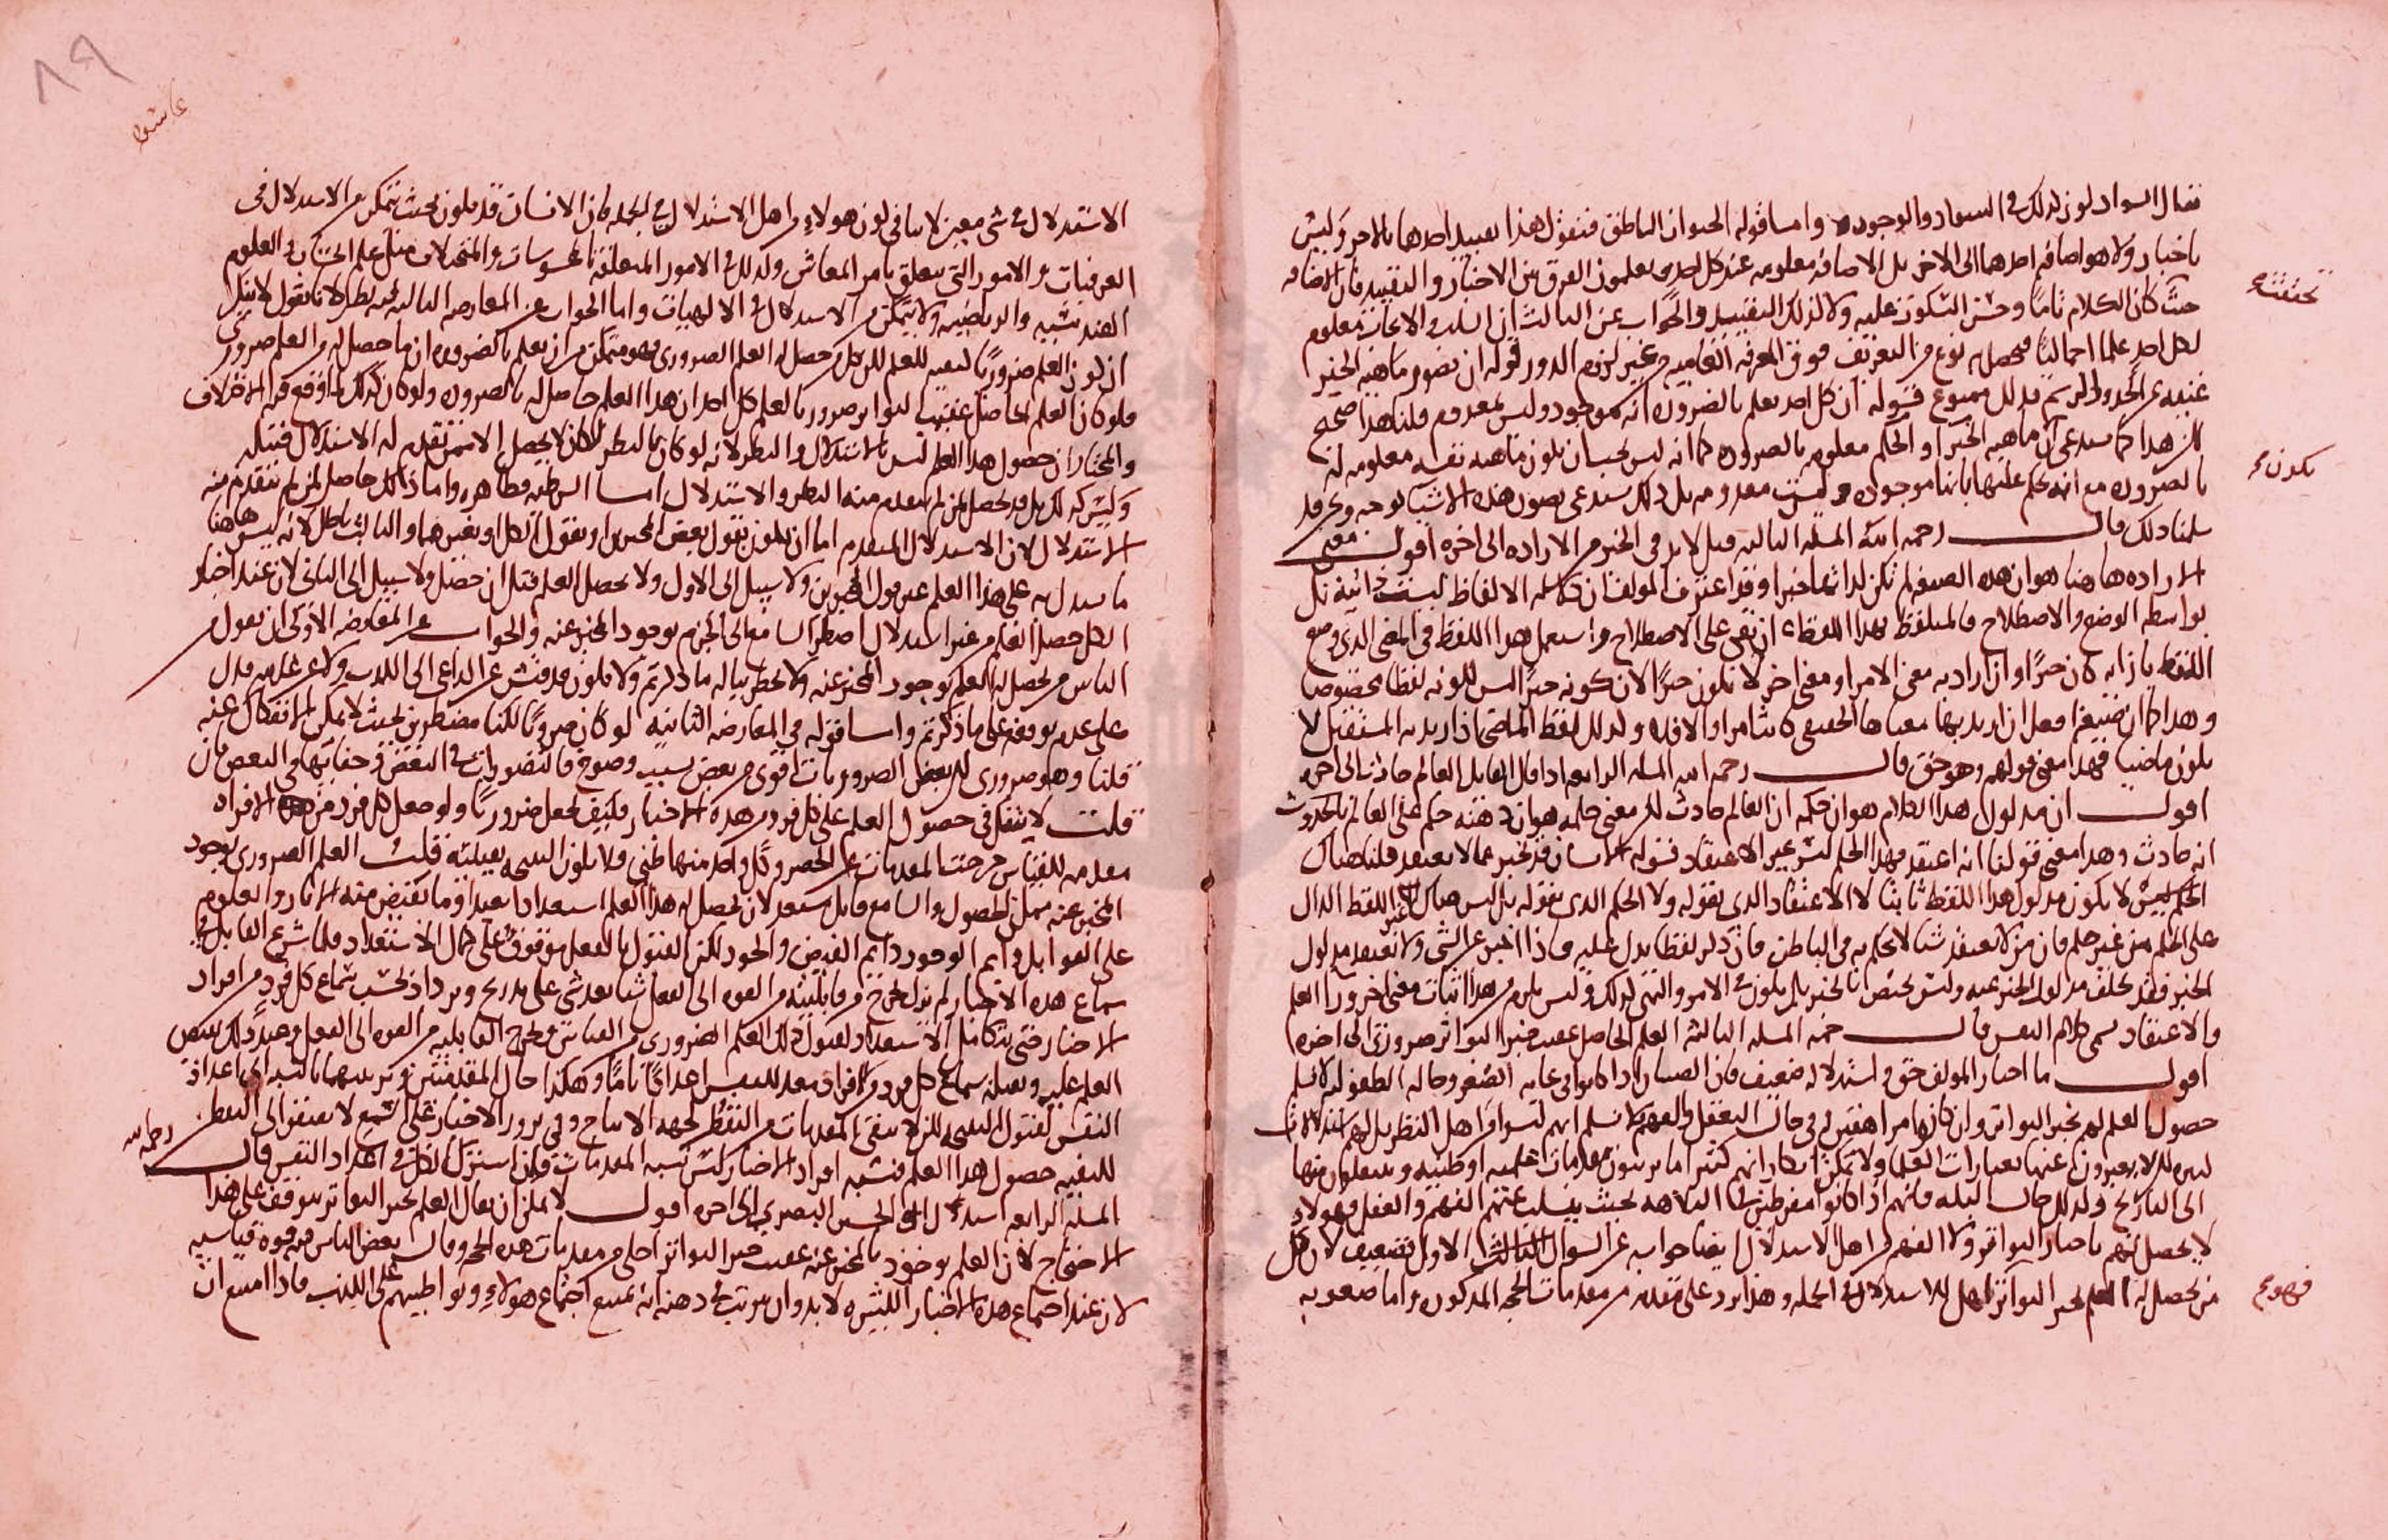 يقال السواد لون لذلك في السواد والوجود وأما قوله الحيوان الناطق فنقول هذا تقييد احدهما بالاخر وليس
باخبار ولا هو اضافه احدهما الى الاخر بل الاضافه معلومه عند كل احد يعلمون الفرق بين الاخبار والتقييد فان الاضافه
تحققه
حيث كان الكلام تاما وحسن السكوت عليه ولا كذلك التقييد والجواب عن الثالث ان السلب والايجاب معلوم
لكل احد علما اجماليا فحصل نوع من التعريف فوق المعرفه العاميه من غير لزوم الدور قوله ان تصور ماهيه الخبر
غنيه عن الحد والرسم قد لك ممنوع قوله ان كل احد يعلم بالضروره انه موجود وليس بمعدوم قلنا هذا صحيح
لكن هذا كما يستدعي ان ماهيه الخبر او الحكم معلومه بالضروره كما انه ليس يجب ان يكون ماهيه نفسه معلومه له
يكون
بالضروره مع انه يحكم عليها بانها موجوده وليست معدومه بل ذلك يستدعي تصور هذه الاشيا بوجه ونحن قد
سلمنا ذلك قال رحمه الله المسله الثالثه قيل لا بد في الخبر من الاراده الى اخره اقول معنى
الاراده هاهنا هو ان هذه الصيغه لم تكن لذاتها خبرا وقد اعترف المولف ان دلاله الالفاظ ليست ذاتيه بل
بواسطه الوضع والاصطلاح فالمتلفظ بهذا اللفظ ان بقي على الاصطلاح واستعمل هذا اللفظ في المعنى الذي وضع
اللفظ بازايه كان خبرا وان اراد به معنى الامر او معنى اخر لا يكون خبرا لان كونه خبرا ليس لكونه لفظا مخصوصا
وهذا كما ان صيغه افعل ان اريد بها معناها الحقيقي كانت امرا والا فلا وكذلك لفظ الماضي اذا اريد به المستقبل لا
يكون ماضيا فهذا معنى قولهم وهو حق قال رحمه الله المسله الرابعه اذا قال القايل العالم حادث الى اخره
اقول ان مدلول هذا الكلام هو ان حكمه ان العالم حادث لكن معنى حكمه هو ان ذهنه حكم على العالم بالحدوث
انه حادث وهذا معنى قولنا انه اعتقد فهذا الحكم ليس غير الاعتقاد قوله الانسان قد يخبر عما لا يعتقد قلنا هناك
الحكم ليس لا يكون مدلول هذا اللفظ ثابتا لا الاعتقاد الذي يقوله ولا الحكم الذي يقوله بل ليس هناك الا اللفظ الدال
على الحكم من غير حكم فان من لا يعتقد شيا لا يحكم به في الباطن فان ذكر لفظا يدل عليه فاذا اخبر عن الشي ولا يعتقد مدلول
الخبر فقد تخلف مدلول الخبر عنه وليس يختص بالخبر بل يكون في الامر والنهي كذلك وليس يلزم من هذا اثبات معنى اخر ورا العلم
والاعتقاد يسمى كلام النفس قال رحمه الله المسله الثالثه العلم الحاصل عقيب خبر التواتر ضروري الى اخره
اقول ما اختار المولف حق واستدلاله ضعيف فان الصبيان اذا كانوا في غايه الصغر وحاله الطفوليه لا نسلم
حصول العلم لهم بخبر التواتر وان كانوا مراهقين في حال التعقل والفهم لا نسلم انهم ليسوا من اهل النظر بل لهم استدلالات
كثيره لكن لا يعبرون عنها بعبارات العلما ولا يمكن انكار انهم كثيرا ما يرتبون مقدمات علميه او ظنيه وينتقلون منها
الى النتايج وكذلك حال البله فانهم اذا كانوا مفرطين في البلاهه بحيث يسلب عنهم الفهم والعقل فهولاء
لا يحصل لهم باخبار التواتر ولا الفهم من اهل الاستدلال ايضا جوابه عن السوال الاول ضعيف لان كل
من يحصل له العلم بخبر التواتر اهل للاستدلال في الجمله وهذا يرد على مقدمه من مقدمات الحجه المذكوره واما صعوبه
فهو
٨٩
الاستدلال في شي معين لا ينافي كون هولاء من اهل الاستدلال في الجمله فان الانسان قد يكون بحيث يتمكن من الاستدلال في
العرفيات والامور التي تتعلق بامر المعاش وكذلك في الامور المتعلقه بالمحسوسات والمتخيلات مثل علم الحساب والعلوم
الهندسيه والرياضيه ولا يتمكن من الاستدلال في الالهيات واما الجواب عن المعارضه الثانيه فيه نظر لانا نقول لا يلزم
ان كون العلم ضروريا كيفيه للعلم لكن كل من حصل له العلم الضروري فهو متمكن من ان يعلم بالضروره ان ما حصل له من العلم ضروري
فلو كان العلم الحاصل عقيب التواتر ضروريا لعلم كل احد ان هذا العلم حاصل له بالضروره ولو كان كذلك لما وقع فيه الاختلاف
والمختار ان حصول هذا العلم ليس بالاستدلال والنظر لانه لو كان بالنظر لكان لا يحصل الا لمن تقدم له الاستدلال قبله
وليس كذلك بل قد يحصل لمن لم يتقدم منه النظر والاستدلال اما الشرطيه فظاهره واما ذلك حاصل لمن لم يتقدم منه
الاستدلال لان الاستدلال المتقدم اما ان يكون بقول بعض المخبرين او بقول الكل او بغيرهما والثالث باطل لانه ليس هاهنا
ما يستدل به على هذا العلم غير قول المخبرين ولا سبيل الى الاول ولا يحصل العلم قبل ان حصل ولا سبيل الى الثاني لان عند اخبار
الكل حصل العلم من غير استدلال اضطر السامع الى الجزم بوجود المخبر عنه والجواب عن المعارضه الاولى ان نقول من
الناس من يحصل له العلم بوجود المخبر عنه ولا يخطر بباله ما ذكرتم ولا يكون قد فتش عن الداعي الى الكذب ولا عن عدمه فدل
على عدم توقفه على ما ذكرتم واما قوله في المعارضه الثانيه لو كان ضروريا لكنا مضطرين بحيث لا يمكن الانفكاك عنه
قلنا وهو ضروري لكن بعض الضروريات اقوى من بعض بسبب وضوح التصورات في البعض وخفايها في البعض فان
قلت لا شك في حصول العلم على كل فرد من هذه الاخبار فكيف يجعل ضروريا ولو جعل كل فرد من هذه الافراد
مقدمه للقياس من حيث المقدمات غير الحصر وكل واحد منها ظني فلا يكون النتيجه يقينيه قلت العلم الضروري بوجود
المخبر عنه ممكن الحصول والسامع قابل مستعد لان يحصل له هذا العلم استعدادا بعيدا وما يفيض منه الانوار والعلوم
على القوابل دايم الوجود دايم الفيض والجود لكن القبول بالفعل موقوف على كمال الاستعداد فلما شرع القابل في
سماع هذه الاخبار لم يزل يخرج من قابليته من القوه الى الفعل شيا بعد شي على تدريج ويزداد بحسب سماع كل فرد من افراد
الاخبار حتى يتكامل الاستعداد لقبول ذلك العلم الضروري من الفياض فخرج القابليه من القوه الى الفعل وعند ذلك يفيض
العلم عليه وبمثله سماع كل فرد من الافراد معد للنفس اعدادا تاما وهكذا حال المقدمتين وترتيبهما بالنسبه الى اعداد
النفس لقبول النتيجه لكن لا ينفي المقدمات من التفطن لجهه الانتاج وفي مرور الاخبار على السمع لا يفتقر الى التفطن
لكيفيه حصول هذا العلم فنسبه افراد الاخبار ليس نسبه المقدمات وان اشترك الكل في اعداد النفس قال رحمه الله
المسله الرابعه استدلال ابي الحسين البصري الى اخره اقول لا يمكن ان يقال العلم بخبر التواتر يتوقف على هذا
الاحتجاج لان العلم بوجود المخبر عنه عقيب خبر التواتر اجلى من مقدمات هذه الحجه وقال بعض الناس فيه قوه قياسيه
لان عند اجتماع هذه الاخبار الكثيره لا بد وان يترتب في ذهنه انه يمتنع اجتماع هولاء وتواطيهم على الكذب فاذا امتنع ان